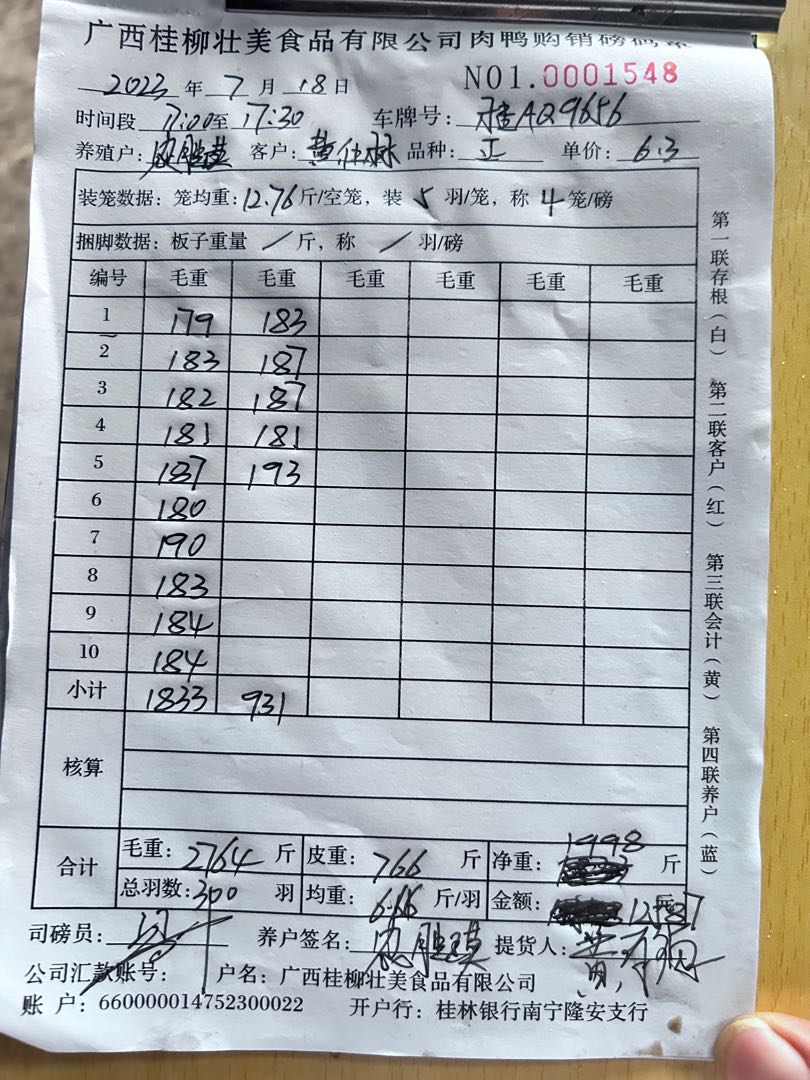 广西桂柳壮美食品有限公司肉鸭购销磅码单
2023 年 7 月 18 日 NO1.0001548
时间段 17:00至 17:30 车牌号: 桂AQ9656
养殖户: 客户: 黄仕林 品种: 正 单价: 6.3
装笼数据: 笼均重: 12.76 斤/空笼, 装 5 羽/笼, 称 4 笼/磅
捆脚数据: 板子重量 / 斤, 称 / 羽/磅
编号 毛重 毛重 毛重 毛重 毛重
1 179 183
2 183 187
3 182 187
4 181 181
5 187 193
6 180
7 190
8 183
9 184
10 184
小计 1833 931
核算
合计 毛重: 2764 斤 皮重: 766 斤 净重: 1998 斤
总羽数: 300 羽 均重: 6.66 斤/羽 金额: 12587 元
司磅员: 养户签名: 提货人:
公司汇款账号: 户名: 广西桂柳壮美食品有限公司
账 户: 660000014752300022 开户行: 桂林银行南宁隆安支行
第一联存根(白) 第二联客户(红) 第三联会计(黄) 第四联养户(蓝)